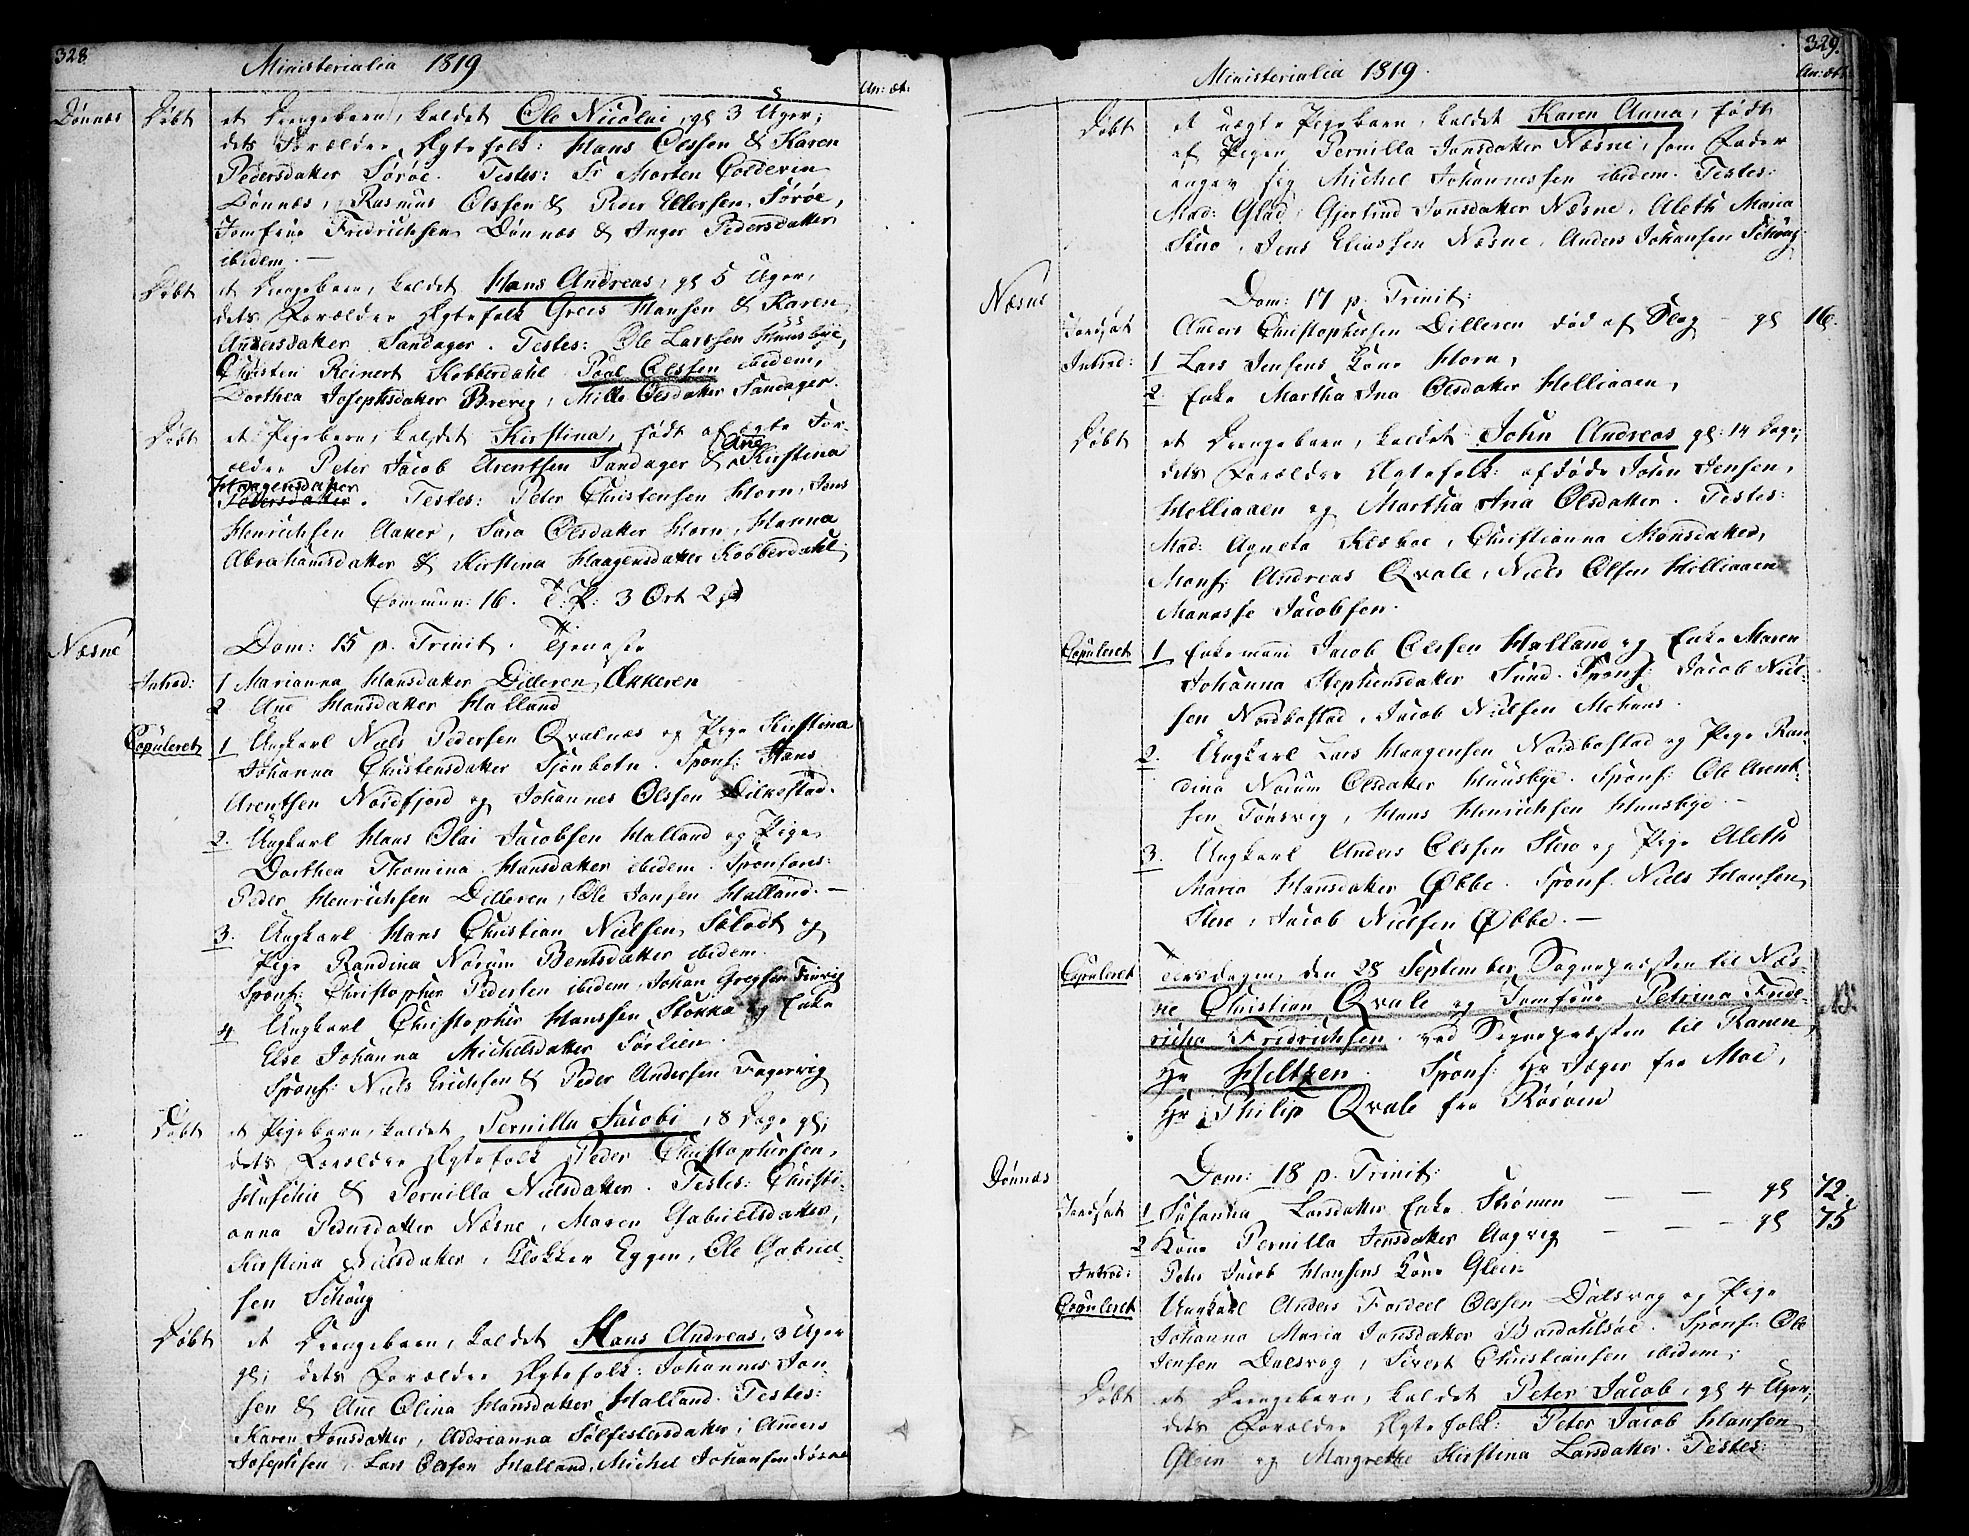 328
Ministerialia 1819
An: æt:
Dønnæs Døbt et Drengebarn, kaldet Ole Nicolai, gl 3 Uger;
dets Forældre Ægtefolk: Hans Olssen & Karen
Pedersdatter Sørøe. Testes: Sr Morten Colderin
Dønnæs, Rasmus Olssen & Peder Ellersen Sørøe,
Jomfrue Fredrichsen Dønnæs & Inger Pedersdatter
ibidem. —
Døbt et Drengebarn, kaldet Hans Andreas, gl 5 Uger,
dets Forældre Ægtefolk Greis Hansen & Karen
Andersdatter Sandager. Testes: Ole Larssen Huusbye,
Christen Reinert Kobberdahl Povel Olssen ibidem,
Dorthea Josephsdatter Brevig, Mille Olsdatter Sandager.
Døbt et Pigebarn, kaldet Kirstina, født af ægte For-
ældre Peter Jacob Arentsen Sandager & Ane Kirstina
Haagensdatter
Pedersdatter. Testes: Peter Christensen Horn, Jens
Henrichsen Aaker, Sara Olsdatter Horn, Hanna
Abrahamsdatter & Kirstina Haagensdatter Kobberdahl
Commun: 16. T: P: 3 Ort 2 ß
Næsne Dom: 15 p. Trinit. Tjeneste
Introd: 1 Marianna Hansdatter Dilleren Akkeren
2 Ane Hansdatter Halland
Copuleret 1 Ungkarl Niels Pedersen Qvalnæs og Pige Kirstina
Johanna Christensdatter Sjonbotn. Spons: Hans
Arentsen Nordfjord og Johannes Olssen Silkestad.
2. Ungkarl Hans Olai Jacobsen Halland og Pige
Dorthea Thomina Hansdatter ibidem. Sponsons:
Peder Henrichsen Dilleren, Ole Jonsen Halland. —
3. Ungkarl Hans Christian Nielsen Sklodt og
Pige Randina Norum Bentsdatter ibidem
Spons: Christopher Pedersen ibidem, Johan Gregsen Finvig
4 Ungkarl Christopher Hanssen Stokka og Enke
Else Johanna Michelsdatter Sørlien.
Spons: Niels Erichsen & Peder Andersen Fagervig
Døbt et Pigebarn, kaldet Pernilla Jacobi, 8 Dage gl;
dets Forældre Ægtefolk Peder Christophersen,
Husebÿe & Pernilla Nielsdatter. Testes: Christi-
anna Pedersdatter Næsne, Maren Gabrielsdatter,
Kirstina Nielsdatter, Klokker Eggen, Ole Gabriel-
sen Schoug
Døbt et Drengebarn, kaldet Hans Andreas, 3 Uger
gl; dets Forældre Ægtefolk: Johannes Jon-
sen & Ane Olina Hansdatter Halland. Testes:
Karen Jonsdatter, Andreanna Sølfestersdatter, Anners
Josephsen, Lars Olssen Halland, Michel Johansen Næsne
329.
Ministerialia 1819.
An: æt:
Døbt et uægte Pigebarn, kaldet Karen Anna, født
af Pigen Pernilla Jonsdatter Næsne, som Fader
angav sig Michel Johannessen ibidem. Testes:
Mad: Glad, Gjertrud Jonsdatter Næsne, Aleth Maria
Steo, Jens Eliassen Næsne, Anders Johansen Schoug
Næsne Dom: 17 p. Trinit:
Jordfæst Anders Christophersen Dilleren død af Slag — gl 16.
Introd: 1 Lars Jensens Kone Horn,
2. Enke Martha Ana Olsdatter Helligaaen,
Døbt et Drengebarn, kaldet John Andreas gl: 14 Dage;
dets Forældre Ægtefolk: afdøde John Jensen,
Helligaaen og Martha Ana Olsdatter. Testes:
Mad: Agneta Klæboe, Christianna Monsdatter,
Mons: Andreas Qvale, Niels Olsen Helligaaen
Manasse Jacobsen.
Copuleret 1 Enkemand Jacob Olssen Halland og Enke Maren
Johanna Stephensdatter Sund. Spons: Jacob Niel-
sen Nordbostad, Jacob Nielsen Mohuus.
2. Ungkarl Lars Haagensen Nordbostad og Pige Ran-
dina Norum Olsdatter Huusbye. Spons: Ole Arent-
sen Tønsvig, Hans Henrichsen Huusbye. —
3. Ungkarl Anders Olssen Steo og Pige Aleth
Maria Hansdatter Økbe. Spons. Niels Hansen
Steo, Jacob Nielsen Økbe. —
Copuleret Tiersdagen, den 28 September Sognepresten til Næs-
ne Christian Qvale og Jomfrue Petrina Frede-
richa Fredrichsen. ved Sognepræsten til Ranen,
Hr Heltzen. Spons: Hr Jæger fra Moe,
Hr Philip Qvale fra Rørøen
Dønnæs Dom: 18 p. Trinit:
Jordfæst 1 Susanna Larsdatter Enke Strømen — — gl 72.
2 Kone Pernilla Jensdatter Aagvig — — — gl 75
Introd: Peter Jacob Hansens Kone Glein
Copuleret Ungkarl Anders Fordeel Olssen Dalsvog og Pige
Johanna Maria Jonsdatter Bardahlsøe. Spons: Ole
Jensen Dalsvog, Sivert Christiansen ibidem;
Døbt et Drengebarn, kaldet Peter Jacob, gl 4 Uger,
dets Forældre Ægtefolk: Peter Jacob Hansen
Glein og Margrethe Kirstina Larsdatter. Testes: